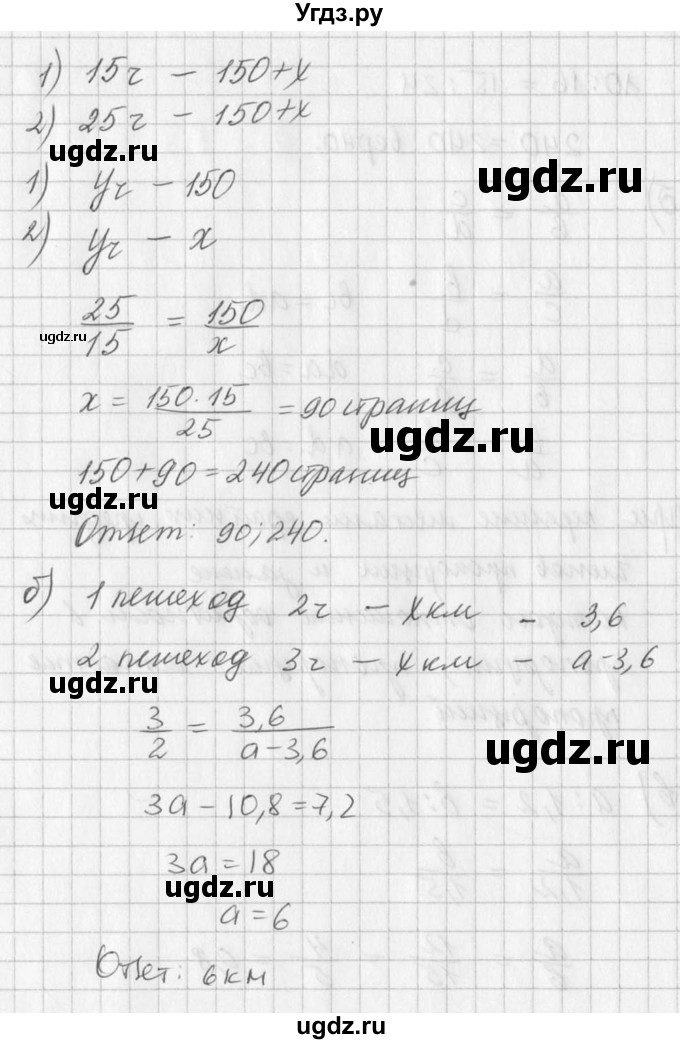 Угдз.ру
1) 15ч – 150+x
2) 25ч – 150+x
ugdz.ru
ugdz.ru
1) yч – 150
2) yч – x
ugdz.ru
25/15 = 150/x
x = 150·15/25 = 90 страниц
ugdz.ru
150+90=240 страниц
ugdz.ru
Ответ: 90; 240.
б) 1 пешеход 2ч – xкм – 3,6
2 пешеход 3ч – xкм – a-3,6
ugdz.ru
3/2 = 3,6/a-3,6
ugdz.ru
3a-10,8=7,2
3a=18
ugdz.ru
ugdz.ru
a=6
Ответ: 6км
ugdz.ru
ugdz.ru